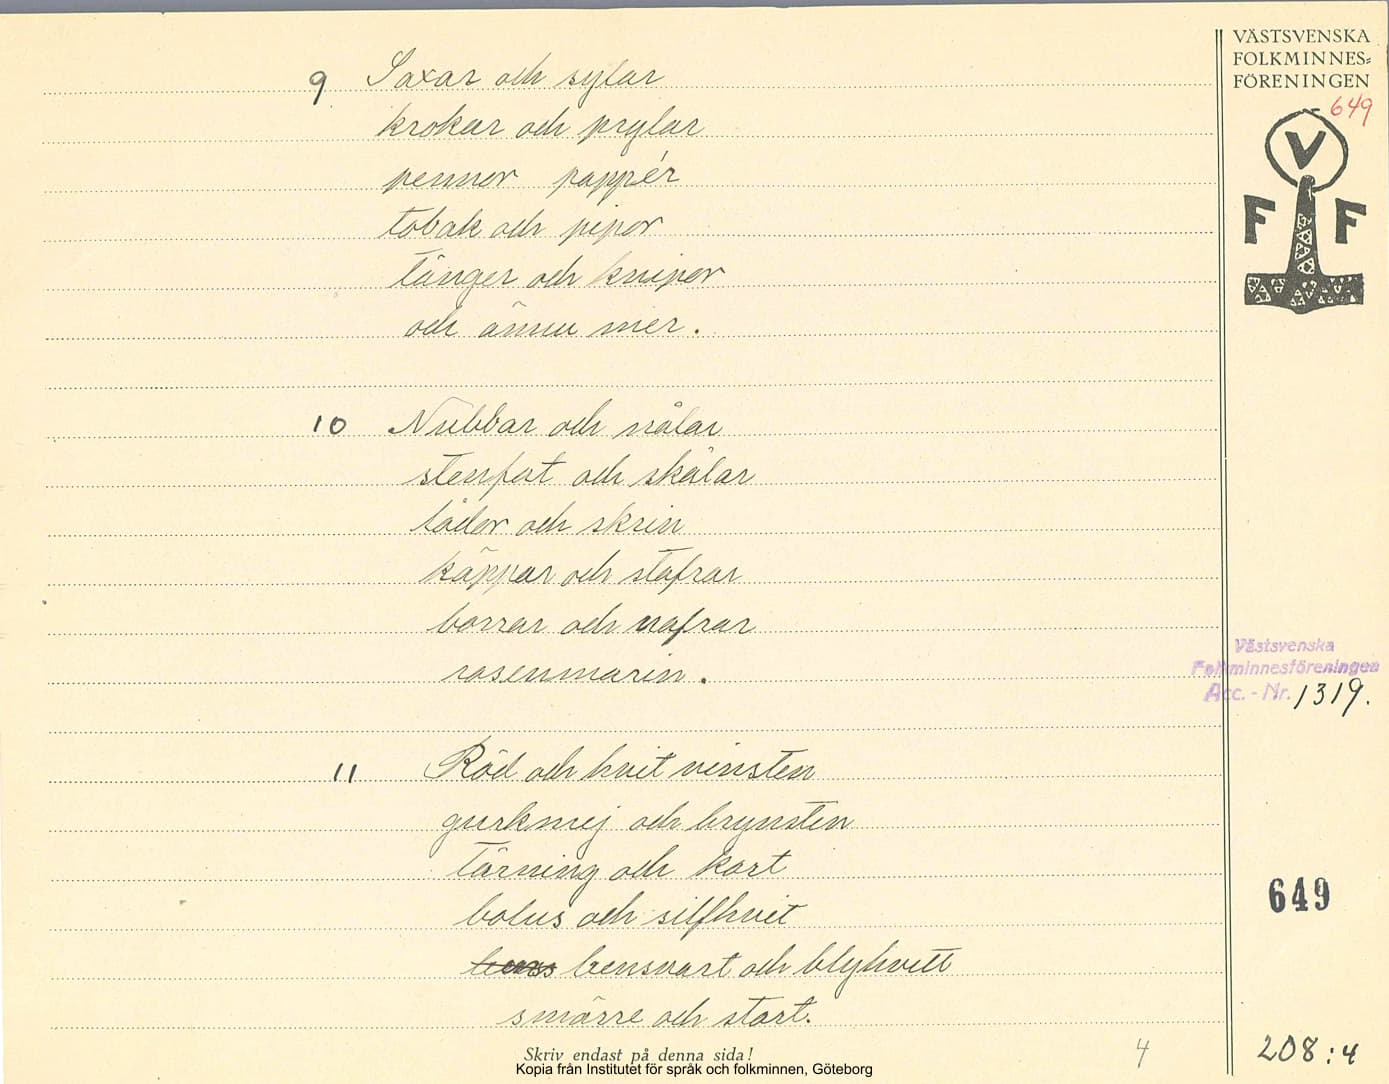 VÄSTSVENSKA
FOLKMINNES=
FÖRENINGEN
649
V
F F
9 Saxar och sylar
krokar och prylar
pennor pappér
tobak och pipor
tänger och knipor
och ännu mer.
10 Nubbar och nålar
stenfat och skålar
lådor och skrin
käppar och stafrar
borrar och nafrar
rosenmarin.
Västsvenska
Folkminnesföreningen
Acc.-Nr. 1319.
11 Röd och hvit vinsten
gurkmej och brynsten
tärning och kort
bolus och silfhvit
bensvart och blyhvitt
smärre och stort.
649
4
208:4
Skriv endast på denna sida!
Kopia från Institutet för språk och folkminnen, Göteborg